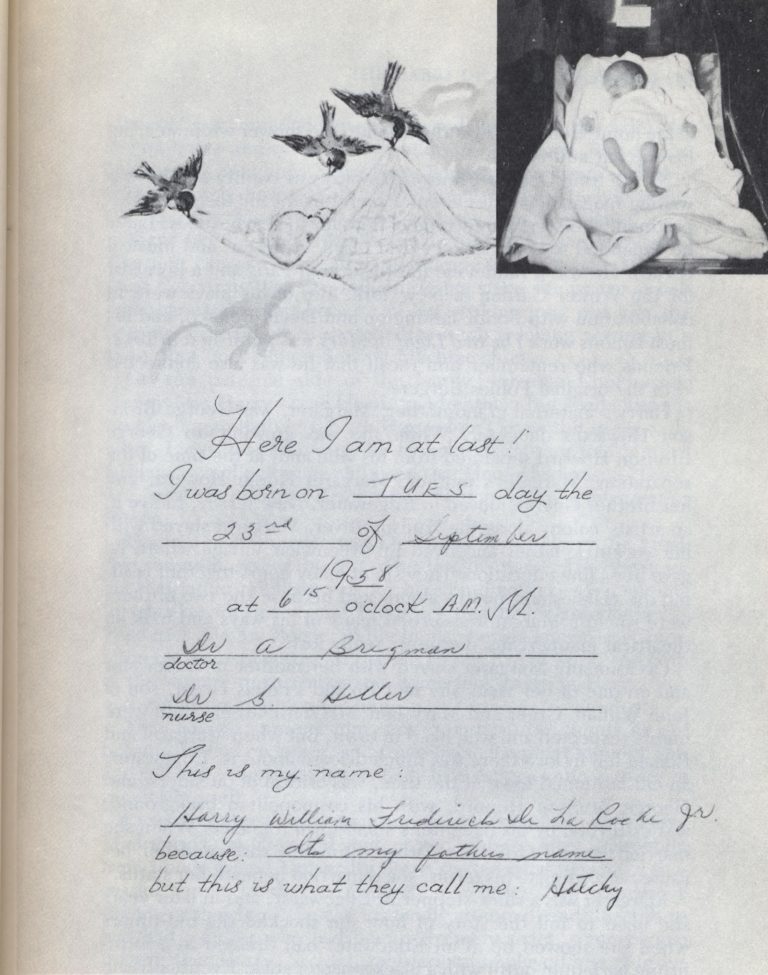 Here I am at last!
I was born on TUES day the
23rd of September
1958
at 6 15 o clock A.M. M.
Dr A Bregman
doctor
Dr S. Heller
nurse
This is my name:
Harry William Frederick De La Roche Jr.
because: Its my fathers name
but this is what they call me: Hotchy